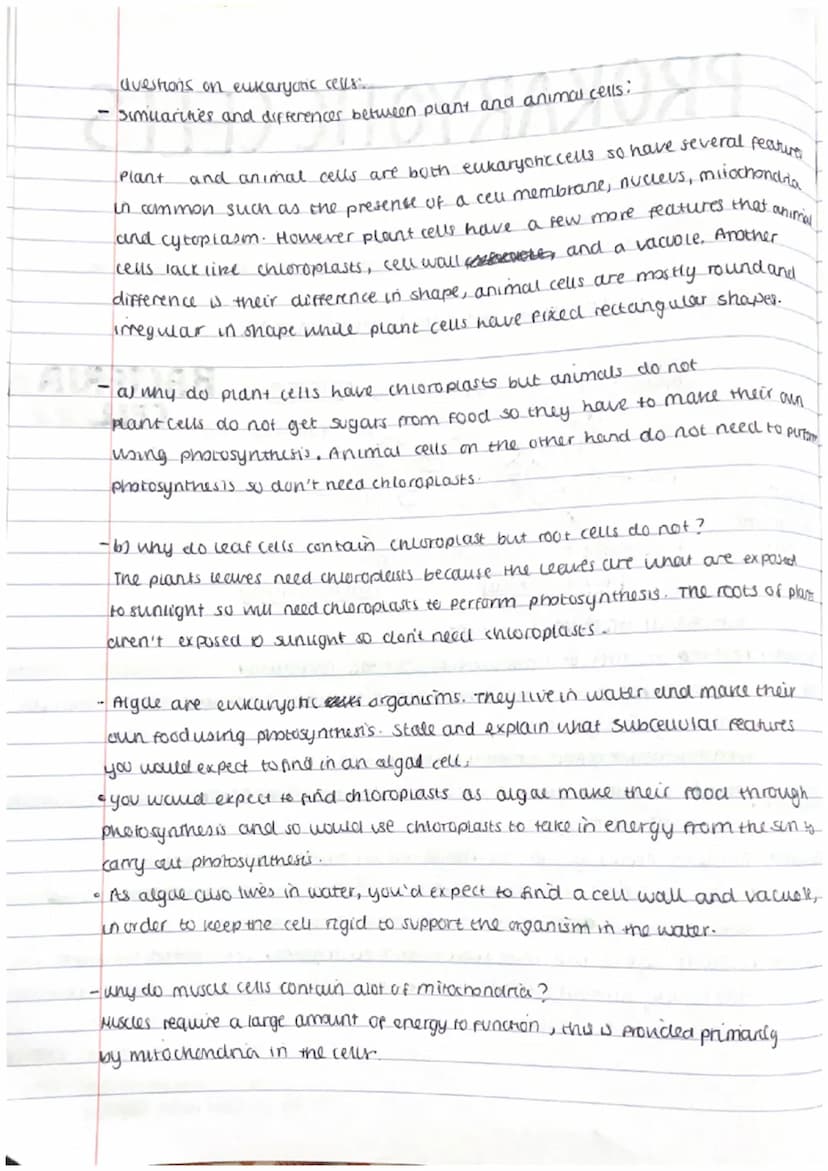 Questions on eukaryotic cells:
- Similarities and differences between plant and animal cells:
Plant and animal cells are both eukaryotic cells so have several features
in common such as the presense of a cell membrane, nucleus, mitochondria
and cytoplasm. However plant cells have a few more features that animal
cells lack like chloroplasts, cell wall and a vacuole. Another
difference is their difference in shape, animal cells are mostly round and
irregular in shape while plant cells have fixed rectangular shapes.
- a) Why do plant cells have chloroplasts but animals do not
plant cells do not get sugars from food so they have to make their own
using photosynthesis. Animal cells on the other hand do not need to perform
photosynthesis so don't need chloroplasts.
- b) Why do leaf cells contain chloroplast but root cells do not?
The plants leaves need chloroplasts because the leaves are what are exposed
to sunlight so will need chloroplasts to perform photosynthesis. The roots of plants
aren't exposed to sunlight so don't need chloroplasts.
- Algae are eukaryotic organisms. They live in water and make their
own food using photosynthesis. State and explain what subcellular features
you would expect to find in an algal cell.
• you would expect to find chloroplasts as algae make their food through
photosynthesis and so would use chloroplasts to take in energy from the sun to
carry out photosynthesis.
• As algae also lives in water, you'd expect to find a cell wall and vacuole,
in order to keep the cell rigid to support the organism in the water.
- Why do muscle cells contain alot of mitochondria?
Muscles require a large amount of energy to function, this is provided primarily
by mitochondria in the cells.